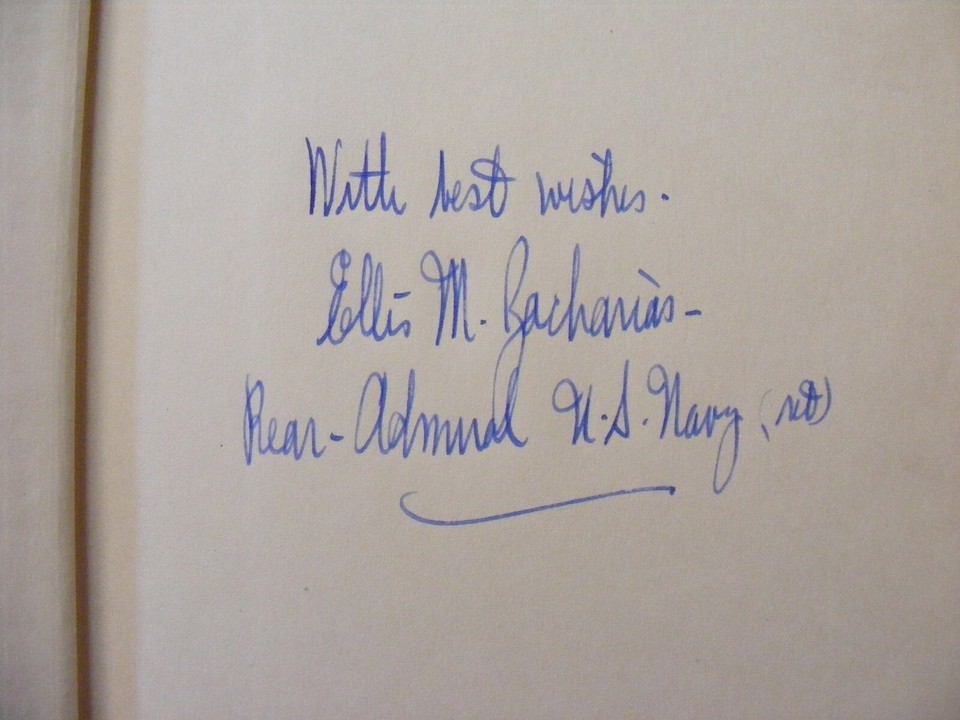 With best wishes.
Ellis M. Zacharias-
Rear-Admiral U.S. Navy (ret)